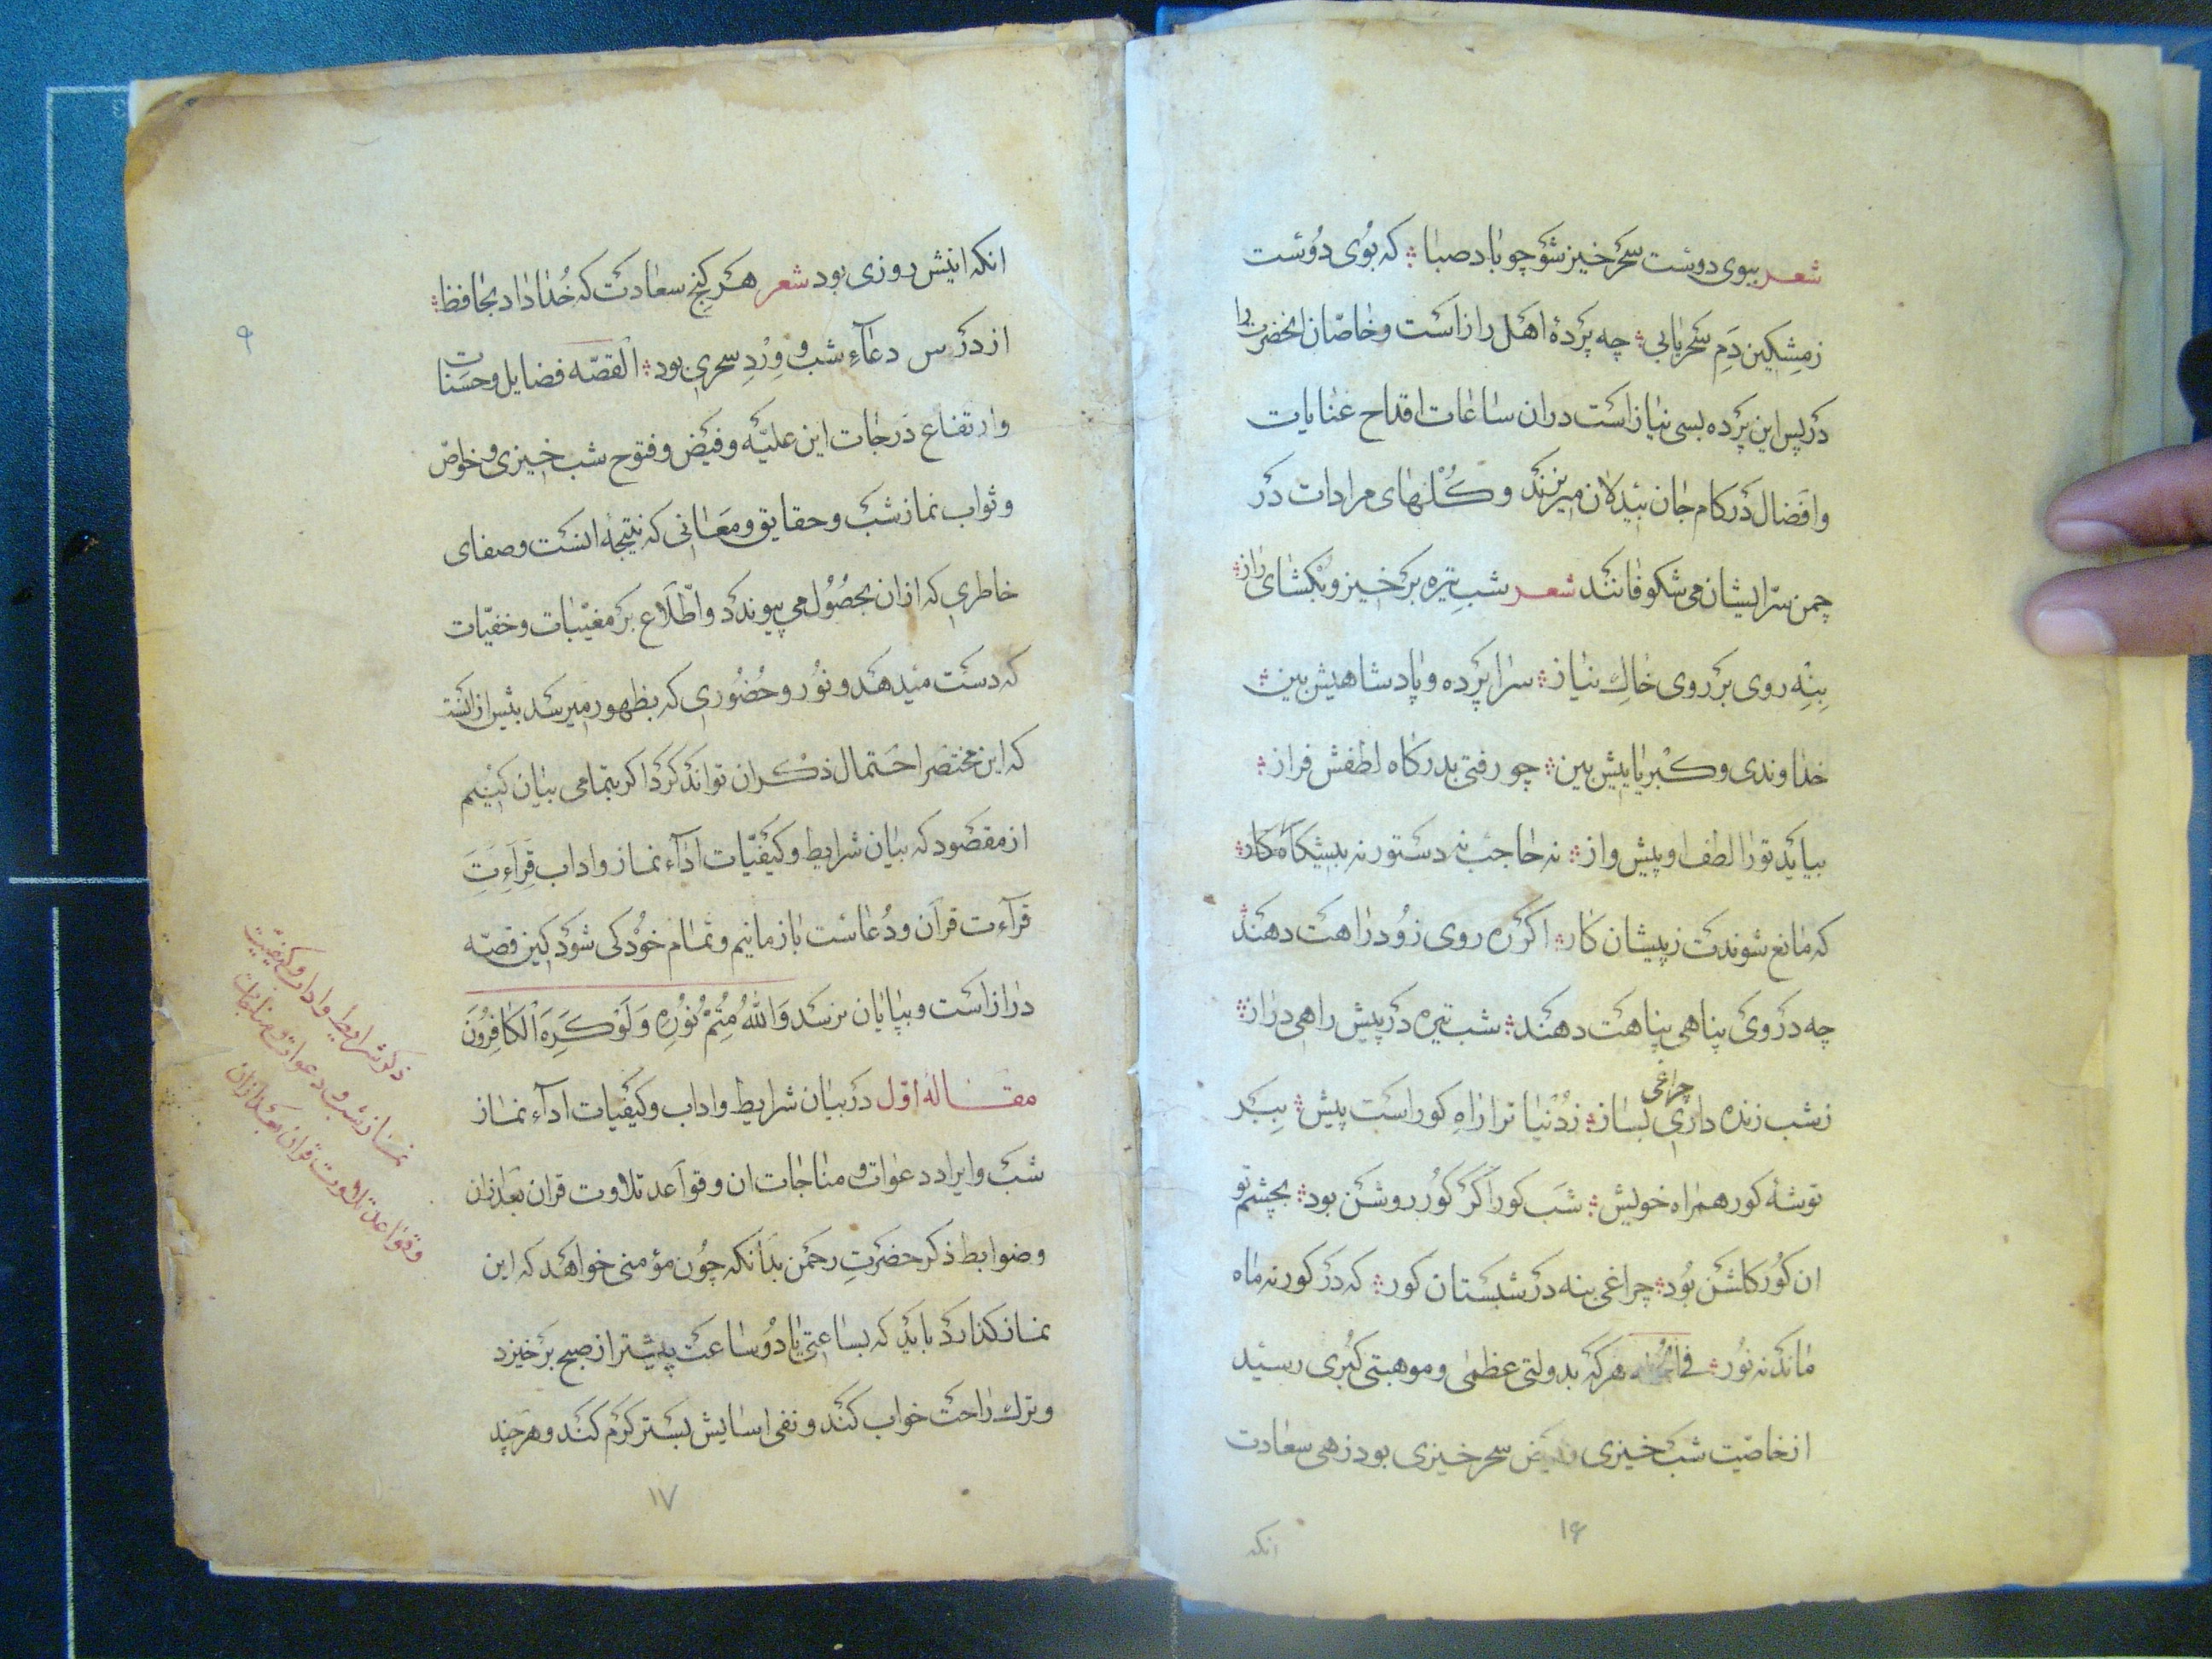 شعر ببوی دوست سحر خیز شو چو باد صبا ؞ که بوی دوست
ز مشکین دم سحر یابی ؞ چه پرده اهل راز است و خاصان انحضرت را
در پس این پرده بسی نیاز است دران ساعات اقداح عنایات
وافضال در کام جان بیدلان میریزند و کلهای مرادات در
چمن سر ایشان می شکوفانند شعر شب تیره برخیز و بکشای راز ؞
بنه روی بر روی خاك نیاز ؞ سراپرده و پادشاهیش بین ؞
خداوندی و کبریاییش بین ؞ چو رفتی بدرکاه لطفش فراز ؞
بیاید تورا لطف او پیش واز ؞ نه حاجب نه دستور نه پیشکاه کار ؞
که مانع شوندت ز پیشان کار ؞ اکر ره روی زود راهت دهند ؞
چه در روی پناهی پناهت دهند ؞ شب تیره در پیش راهی دراز ؞
ز شب زنده داری چراغی بساز ؞ ز دنیا ترا راه کور است پیش ؞ ببر
توشهٔ کور همراه خویش ؞ شب کور اکر کور روشن بود ؞ بچشم تو
ان کور کلشن بود ؞ چراغی بنه در شبستان کور ؞ که در کور نه ماه
ماند نه نور ؞ فی الجمله هرکه بدولتی عظمی و موهبتی کبری رسید
از خاصیت شب خیزی و فیض سحر خیزی بود زهی سعادت
انکه
۱۶
انکه اینش روزی بود شعر هر کنج سعادت که خدا داد بحافظ ؞
از درس دعآء شب و ورد سحری بود ؞ القصه فضایل و حسنات
و ارتفاع درجات این علیه و فیض و فتوح شب خیزی و خواص
و ثواب نماز شب و حقایق و معانی که نتیجهٔ انست وصفای
خاطری که ازان بحصول می پیوندد و اطلاع بر مغیبات و خفیات
که دست میدهد و نور و حضوری که بظهور میرسد بیش از انست
که این مختصر احتمال ذکر ان تواند کرد اکر بتمامی بیان کنیم
از مقصود که بیان شرایط و کیفیات ادآء نماز و اداب قرآءت
قرآءت قرآن و دعاست باز مانیم و تمام خود کی شود کین قصه
دراز است و بپایان نرسد وَاللهُ مُتِمُّ نُورِهِ وَلَوْ كَرِهَ الْكَافِرُونَ
مقالهٔ اول در بیان شرایط و اداب و کیفیات ادآء نماز
شب و ایراد دعوات و مناجات ان و قواعد تلاوت قران بعد ازان
و ضوابط ذکر حضرت رحمن بدانکه چون مؤمنی خواهد که این
نماز کذارد باید که بساعتی یا دو ساعت پیشتر از صبح برخیزد
و ترك راحت خواب کند و نفی اسایش بستر کرم کند و هرچند
۱۷
۹
ذکر شرایط و اداب و کیفیت
نماز شب و دعوات و مناجات
و قواعد تلاوت قران بعد ازان